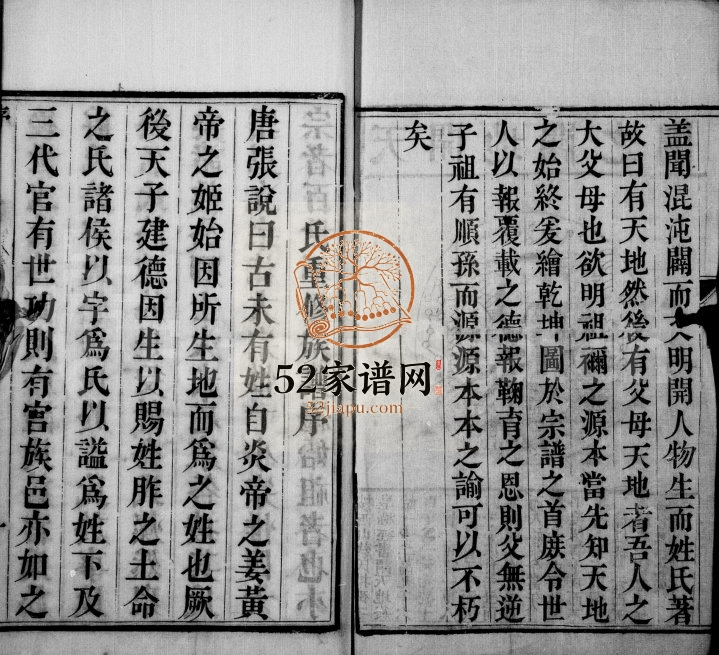 蓋聞混沌闢而文明開人物生而姓氏著
故曰有天地然後有父母天地者吾人之
大父母也欲明祖禰之源本當先知天地
之始終爰繪乾坤圖於宗譜之首庶令世
人以報覆載之德報鞠育之恩則父無逆
子祖有順孫而源源本本之諭可以不朽
矣
氏重修族譜序
唐張說曰古未有姓自炎帝之姜黃
帝之姬始因所生地而爲之姓也厥
後天子建德因生以賜姓胙之土命
之氏諸侯以字爲氏以謚爲姓下及
三代官有世功則有官族邑亦如之
52家谱网
52jiapu.com